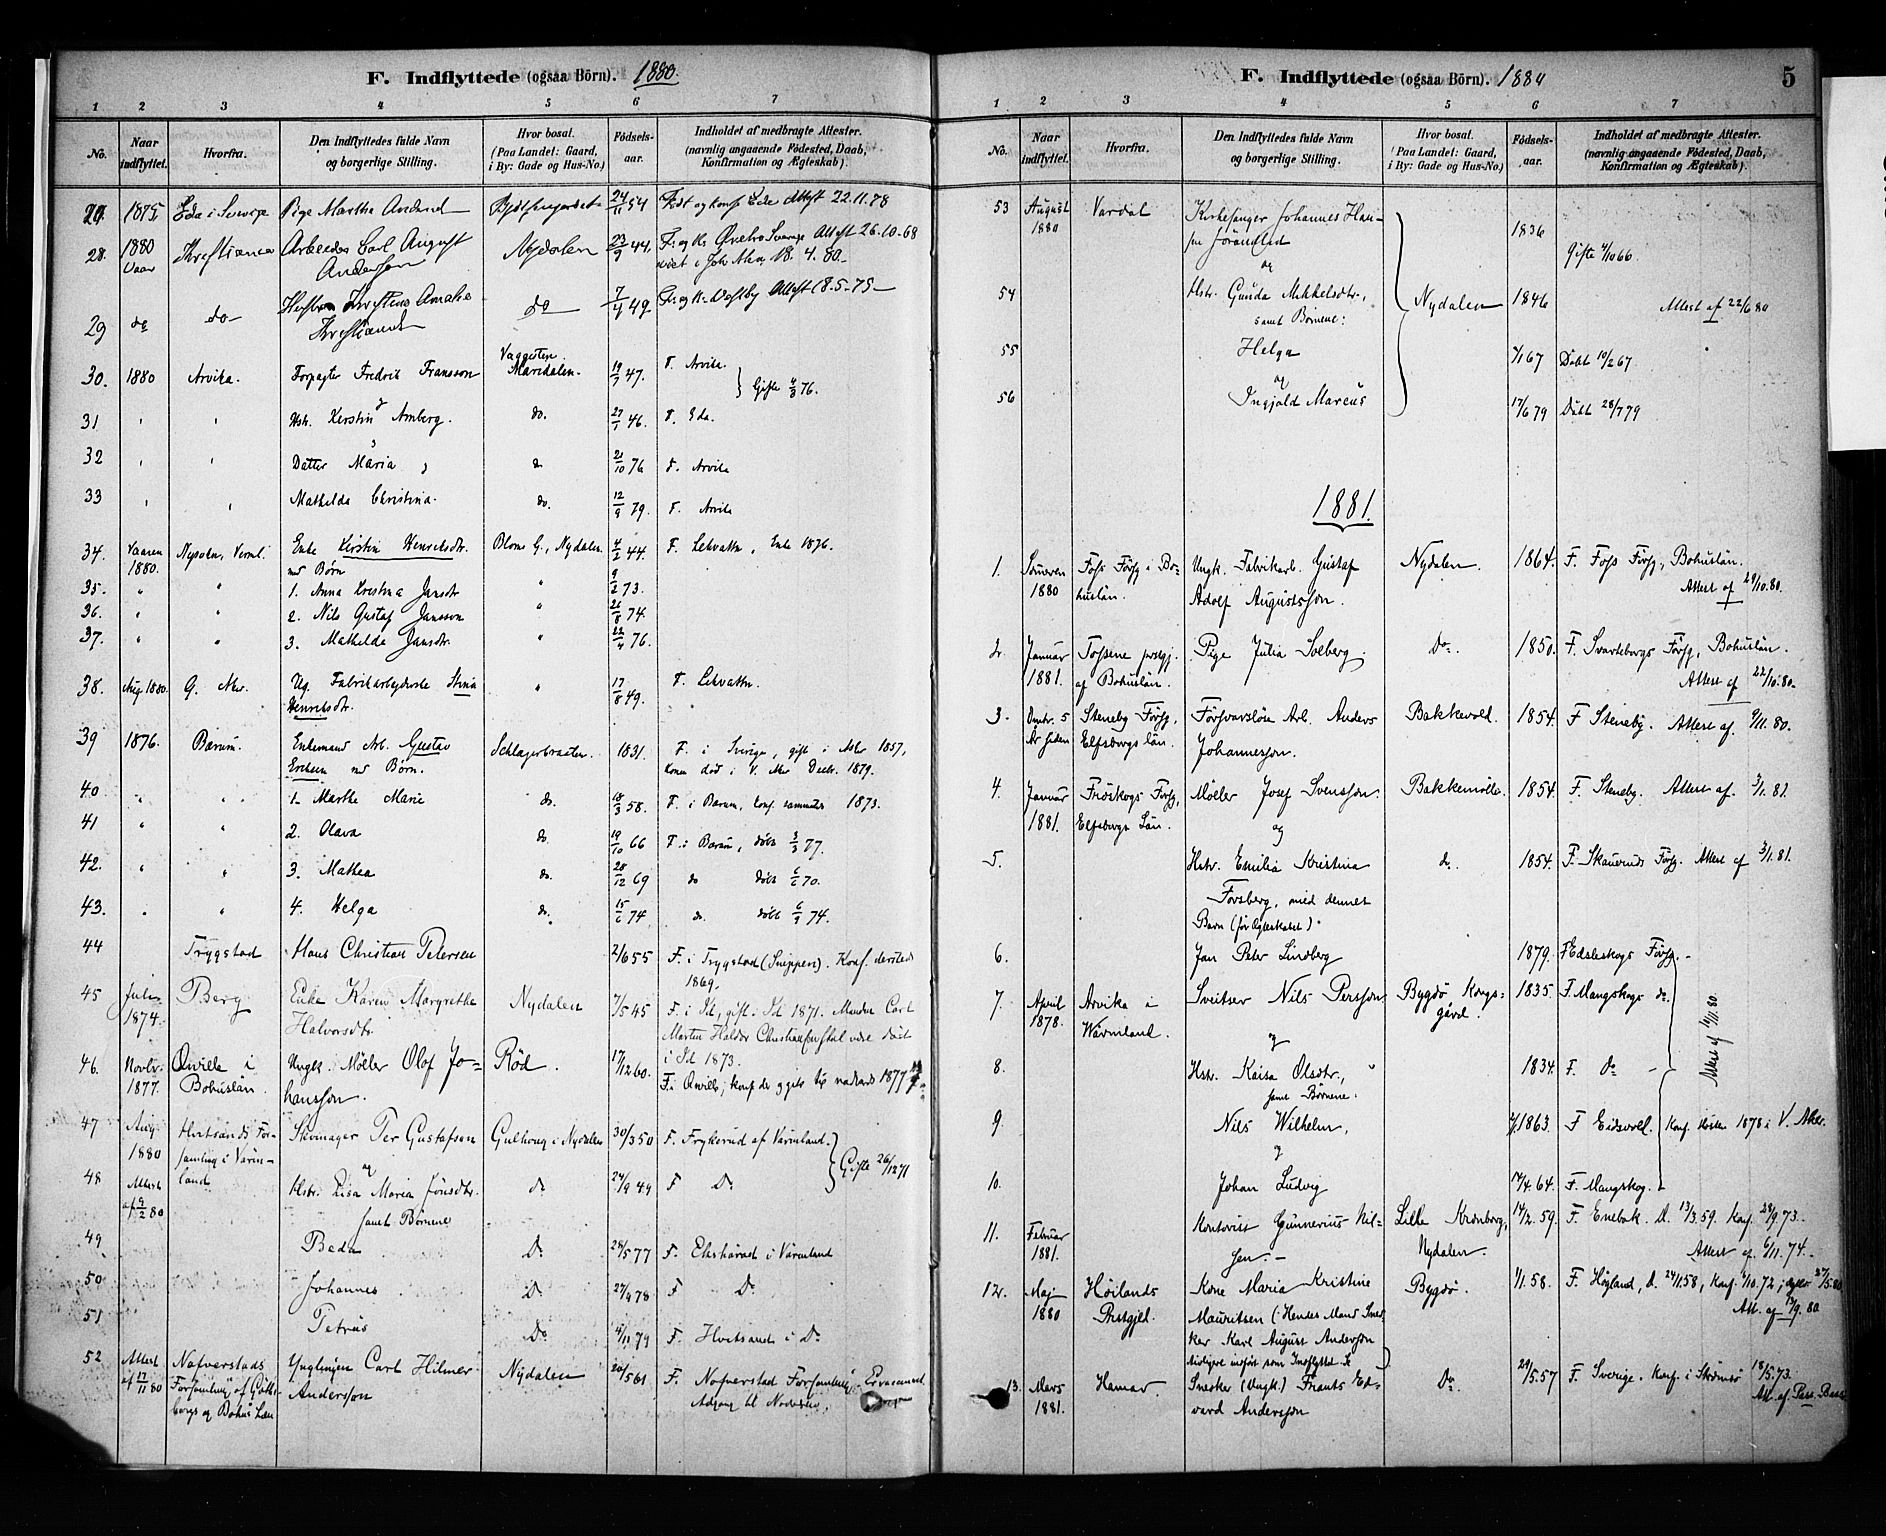 F. Indflyttede (ogsaa Börn). 1880.
1 2 3 4 5 6 7
No. Naar indflyttet. Hvorfra. Den Indflyttedes fulde Navn og borgerlige Stilling. Hvor bosat. (Paa Landet: Gaard, i By: Gade og Hus-No.) Födsels-aar. Indholdet af medbragte Attester. (navnlig angaaende Födested, Daab, Konfirmation og Ægteskab).
1875 Eda i Pige Martha 24/11 54 Födt og konf Eda Attest 22.11.78
28. 1880 Vaar Kristiania Arbeider Carl August Andersen Nydalen 23/9 44. F. og K. Attest 26-10-68
18. 4. 80.
29 do do Amalie do 7/4 49 F. og K. Vestby Attest 18-5-75
30. 1880 Arvika. Forpagter Fredrik Fransson Maridalen. 19/7 47. F. Arvika. } Gifte 4/3 76.
31 Hstr. Kerstin Amberg. do. 27/1 46. F. Eda.
32 Datter Maria 21/10 76 F. Arvika
33 Mathilda Christina. do. 12/9 79. F. Arvika
34. Vaaren 1880. Enke Kerstin Henriksdtr. med Børn Bloms G., Nydalen. 4/2 44 F. Lekvattn, Enke 1876.
35. 1. Anna 9/2 73.
36. 2. Nils Gustaf Jansson 26/8 74.
37. 3. Mathilda Jansdtr. 22/4 76.
38. Aug 1880. Ug. Fabrikarbeiderske Stina Henriksdtr. 17/8 49. F. Lekvattn.
39 1876. Bærum. Enkemand Arb. Gustav Ericksen med Børn. 1831. F. i Sverige, gift i Asker 1857,
Konen död i V. Aker Decbr. 1879.
40 1. Marthe Marie do. 18/3 58. F. i Bærum, konf. sammesteds 1873.
41 2. Olava do. 19/10 66 F. i Bærum, döbt 3/3 77.
42. 3. Mathea do. 28/12 69 do döbt 70.
43. 4. Helga do. 15/6 74. do. döbt 6/9 74.
44 Trygstad Hans Christian Petersen 2/6 55 F. i Trygstad Konf. dersteds 1869.
45 Juli 1874. Berg Enke Karen Margrethe Halvorsdtr. Nydalen 7/5 45 F. i Id, gift i Id 1871. Manden Carl
i Id 1873.
46. Novbr. 1877. Qwille i Bohuslän. Ungk. Möller Olof Johansson. Röd. 17/12 60.
47 Aug 1880 Hvitsands Forsamling i Värmland Per Gustafson Gulhoug i Nydalen 30/3 50 F. Frykerud af Värmland. } Gifte 26/12 71
48 Attest af 9/2 80 og Hstr. Lisa Maria Jönsdtr. samt Børnene Do 24/9 49 F Do
49 Beda Do 28/5 77 F. Ekshärad i Värmland
50 Johannes Do 27/9 78 F Do
51 Petrus Do 4/11 79 F. Hvitsand i Do
52 Attest af 17/11 80 Nafverstads Forsamling af Göteborgs og Bohus Län Ynglingen Carl Hilmer Anderson Nydalen 20/5 61 F. Nafverstad Forsamling,
Adgang til Nadveren,
F. Indflyttede (ogsaa Börn). 5
1 2 3 4 5 6 7
No. Naar indflyttet. Hvorfra. Den Indflyttedes fulde Navn og borgerlige Stilling. Hvor bosat. (Paa Landet: Gaard, i By: Gade og Hus-No.) Födsels-aar. Indholdet af medbragte Attester. (navnlig angaaende Födested, Daab, Konfirmation og Ægteskab).
53 August 1880 Vardal Kirkesanger Johannes Hansen 1836 Gifte 4/10 66.
og
54 Hstr. Gunda Mikkelsdtr., samt Børnene: Nydalen 1846 Attest af 22/6 80
55 Helga 67 Döbt 10/2 67
og
56 Ingjald Marcus 17/6 79 Döbt 28/7 79
1881.
1. Sommeren 1880 Foss Försg i Bohuslän. Ungk. Fabrikarb. Gustaf Adolf Augustsson. Nydalen. 1864. F. Foss Försg., Bohuslän.
Attest af 29/10. 80.
2. Januar 1881. Tossene prstgj. af Bohuslän. Pige Julia Solberg. Do. 1850. F. Svarteborgs Försg, Bohuslän.
Attest af 22/10. 80.
3. Steneby Försg, Elfsborgs län. Försvarslöse Arb. Anders Johannesson. Bakkevold. 1854. F Steneby. Attest af 9/11. 80.
4. Januar 1881. Fröskogs Försg, Elfsborgs Län. Möller Josef Svensson. Bakkemölle. 1854. F. Steneby. Attest af 3/1. 81.
og
5. Hstr. Emilia Kristina Forsberg, med dennes Barn (før Ægteskabet). do. 1854. F. Försg. Attest af 3/1. 81.
6. Jan Peter Lindberg 1879. F. Edsleskogs Försg.
7. April 1878. Arvika i Wärmland. Sveitser Nils Persson Bygdö Kongsgård. 1835. F. Mangskogs do. Attest af 14/11. 80.
og
8. Hstr. Kaisa Olsdtr., samt Børnene: 1834. F. Do
9. Nils Wilhelm, 1863. F Eidsvoll. Konf. Høsten 1878 i V. Aker.
og
10. Johan Ludvig 17/4. 64. F. Mangskog.
11. Februar 1881. Kontorist Gunnerius Nilsen. Lille Kronborg, Nydalen. 14/2. 59. F. Enebak. D. 13/3. 59. Konf. 28/9. 73.
Attest af 6/11. 74.
12. Maj 1880 Höilands Prstgjeld. Kone Maria Kristine Mauritsen (Hendes Mand Snedker Karl August Andersson Bygdö. 1/1. 58. F. Högland, D. 24/1 58, Konf. 72;
Att. af 80
13. Mars 1881. Hamar. Snecker (Ungk.) Frants Edvard Andersson Do. 29/5. 57 F. Sverige. Konf. i 18/5. 73.
Att. af